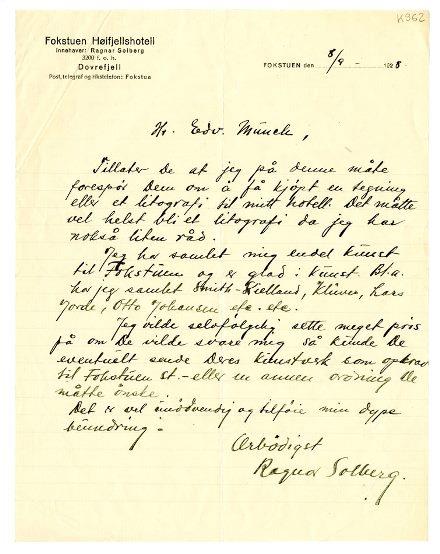 K362
Fokstuen Høifjellshotell
Innehaver: Ragnar Solberg
3200 f. o. h.
Dovrefjell
Post, telegraf og rikstelefon: Fokstua
FOKSTUEN den 8/9 - 1928
Hr. Edv. Munch,
Tillater De at jeg på denne måte
forespør Dem om å få kjøpt en tegning
eller et litografi til mitt hotell. Det måtte
vel helst bli et litografi da jeg har
nokså liten råd.
Jeg har samlet mig endel kunst
til Fokstuen og er glad i kunst. Bl.a.
har jeg samlet Smith-Kielland, Kluver, Lars
Jorde, Otto Johansen etc. etc.
Jeg vilde selvfølgelig sette meget pris
på om De vilde svare mig så kunde De
eventuelt sende Deres kunstverk som opkrav
til Fokstuen st. - eller en annen ordning De
måtte ønske.
Det er vel unødvendig og tilføie min dype
beundring.
Ærbødigst
Ragnar Solberg.